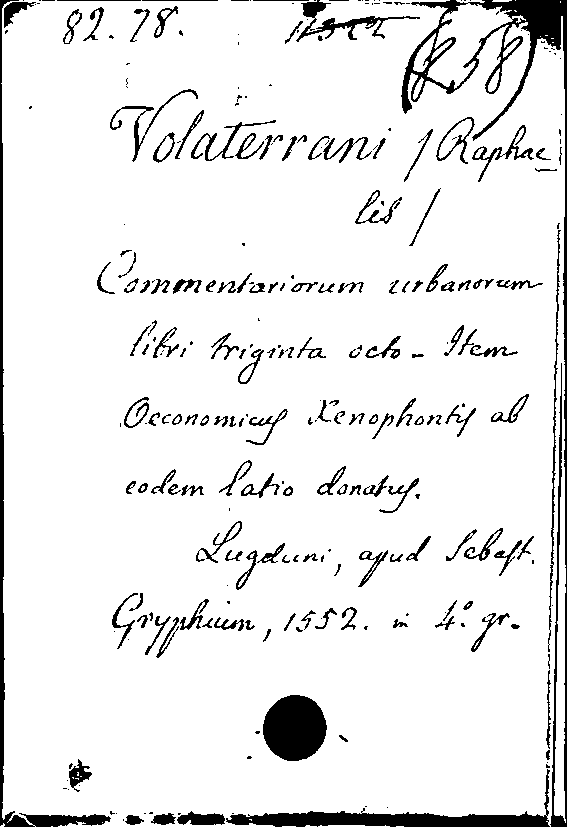 82.78.
Volaterrani / Raphae-
lis /
Commentariorum urbanorum
libri triginta octo - Item
Oeconomicus Xenophontis ab
eodem latio donatus.
Lugduni, apud Sebast.
Gryphium, 1552. in 4.° gr.